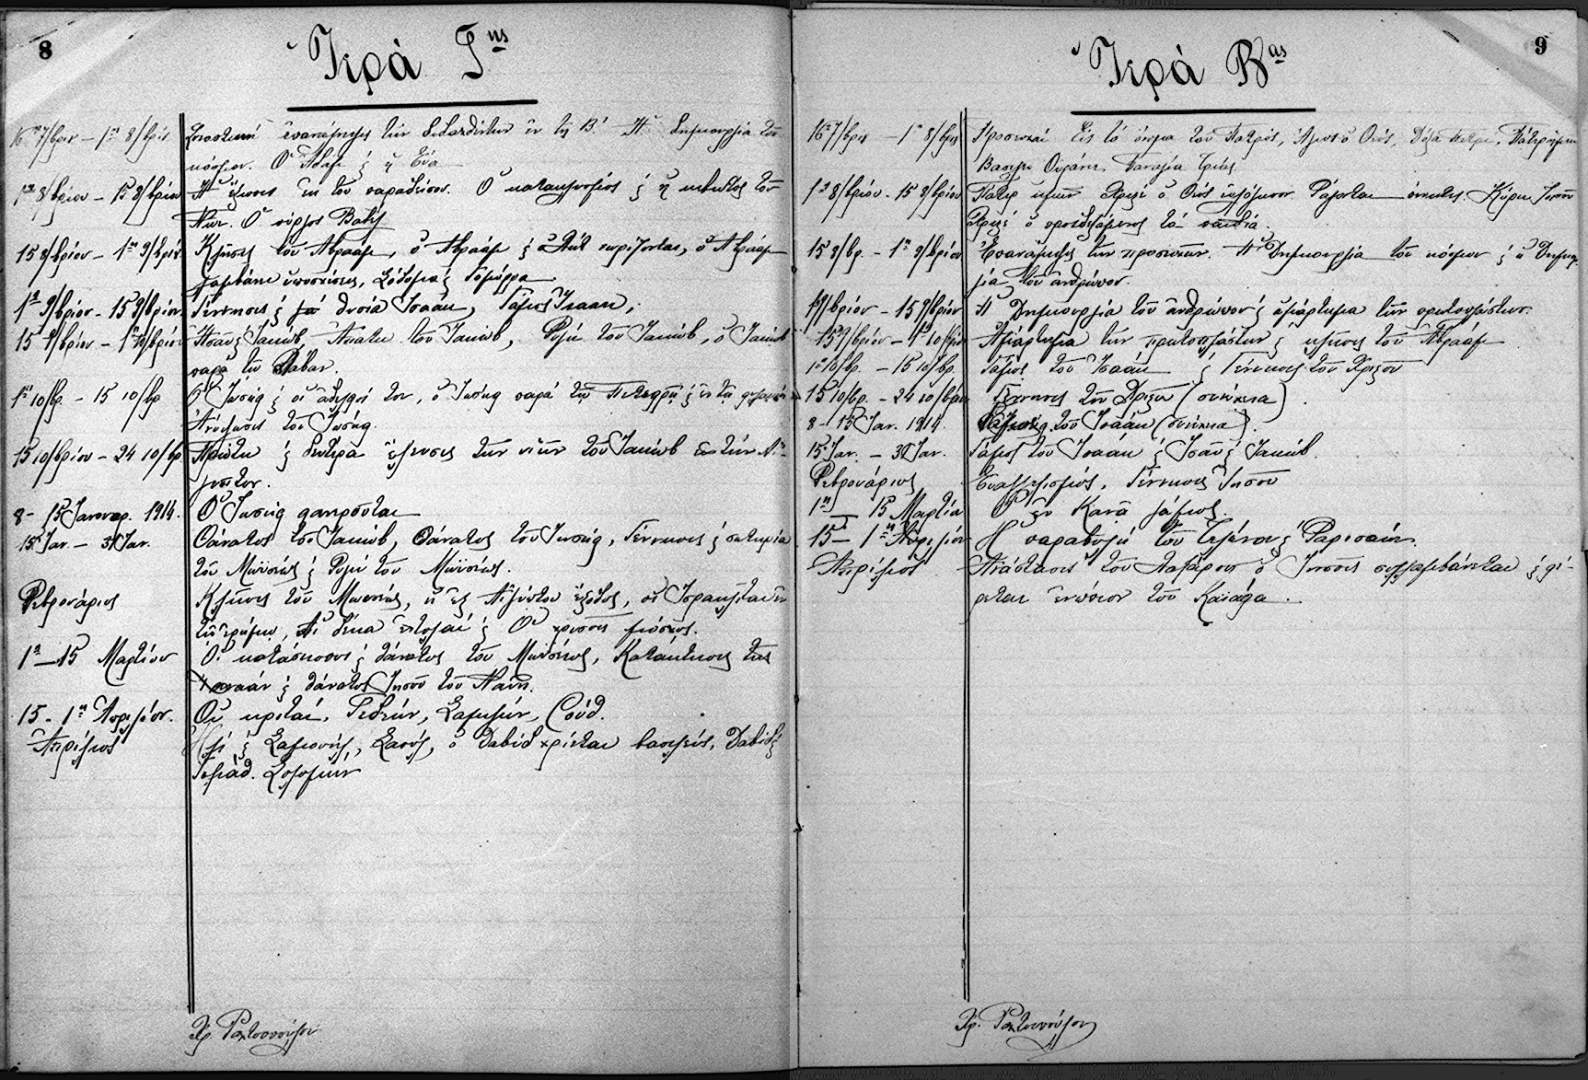 8
Ἱερὰ Γης
16 7/βρίου – 1η 8/βρίου Συνοπτικὴ ἐπανάληψις τῶν διδαχθέντων ἐν τῇ Β' Ἡ δημιουργία τοῦ
κόσμου. Ὁ Ἀδὰμ ξ ἡ Εὔα
1η 8/βρίου – 15 8/βρίου Ἡ ἔξωσις ἐκ τοῦ παραδείσου. Ὁ κατακλυσμὸς ξ ἡ κιβωτὸς τοῦ
Νῶε. Ὁ πύργος Βαβὲλ
15 8/βρίου – 1η 9/βρίου Κλῆσις τοῦ Ἀβραάμ, ὁ Ἀβραὰμ ξ ὁ Λὼτ χωρίζονται, ὁ Ἀβραὰμ
λαμβάνει ὑποσχέσεις, Σόδομα ξ Γόμορρα
1η 9/βρίου – 15 9/βρίου Γέννησις ξ θυσία Ἰσαάκ, Γάμος Ἰσαάκ,
15 9/βρίου – 1η 10/βρίου Ἠσαῦ ξ Ἰακώβ, Ἀπάτη τοῦ Ἰακώβ, Φυγὴ τοῦ Ἰακώβ, ὁ Ἰακὼβ
παρὰ τῷ Λάβαν.
1η 10/βρ. – 15 10/βρ Ὁ Ἰωσὴφ ξ οἱ ἀδελφοί του, ὁ Ἰωσὴφ παρὰ τῷ Πετεφρῇ ξ ἐν τῇ φυλακῇ
Ἀνύψωσις τοῦ Ἰωσήφ.
15 10/βρίου – 24 10/βρ Πρώτη ξ δευτέρα ἔλευσις τῶν υἱῶν τοῦ Ἰακὼβ εἰς τὴν Αἴ-
γυπτον.
8 – 15 Ἰανουαρ. 1914. Ὁ Ἰωσὴφ φανεροῦται
15 Ἰαν – 30 Ἰαν. Θάνατος τοῦ Ἰακώβ, Θάνατος τοῦ Ἰωσήφ, Γέννησις ξ σωτηρία
τοῦ Μωϋσέως ξ Φυγὴ τοῦ Μωϋσέως.
Φεβρουάριος Κλῆσις τοῦ Μωϋσέως, ἡ ἐξ Αἰγύπτου ἔξοδος, οἱ Ἰσραηλῖται ἐν
τῇ ἐρήμῳ, Αἱ δέκα ἐντολαὶ ξ Ὁ χρυσοῦς μόσχος.
1η – 15 Μαρτίου Οἱ κατάσκοποι ξ θάνατος τοῦ Μωϋσέως, Κατάκτησις τῆς
Χαναὰν ξ θάνατος Ἰησοῦ τοῦ Ναυῆ.
15 – 1ην Ἀπριλίου. Οἱ κριταί, Γεδεών, Σαμψών, Ῥούθ.
Ἀπρίλιος Ἠλὶ ξ Σαμουήλ, Σαούλ, ὁ Δαβὶδ χρίεται βασιλεύς, Δαβὶδ ξ
Γολιάθ. Σολομών
Χρ. Ραυτοπούλου
9
Ἱερὰ Βας
16 7/βρίου – 1η 8/βρίου Προσευχαὶ Εἰς τὸ ὄνομα τοῦ Πατρός, Ἅγιος ὁ Θεός, Δόξα Πατρί, Πάτερ ἡμῶν
Βασιλεῦ Οὐράνιε, Παναγία Τριάς
1η 8/βρίου – 15 8/βρίου Πάτερ ἡμῶν Κύριε Ἰησοῦ
Χριστὲ ὁ τὰ παιδιά.
15 8/βρ. – 1η 9/βρίου Ἐπανάληψις τῶν προσευχῶν. Ἡ Δημιουργία τοῦ κόσμου ξ ἡ Δημιουρ
γία τοῦ ἀνθρώπου.
1η 9/βρίου – 15 9/βρίου Ἡ Δημιουργία τοῦ ἀνθρώπου ξ ἁμάρτημα τῶν πρωτοπλάστων.
15 9/βρίου – 1η 10/βρίου Ἁμάρτημα τῶν πρωτοπλάστων ξ κλῆσις τοῦ Ἀβραάμ
1η 10/βρ. – 15 10/βρ. Γάμος τοῦ Ἰσαὰκ ξ Γέννησις τοῦ Χριστοῦ
15 10/βρ. – 24 10/βρίου Γέννησις τοῦ Χριστοῦ (συνέχεια)
8 – 15 Ἰαν. 1914. Γάμος τοῦ Ἰσαὰκ (συνέχεια).
15 Ἰαν. – 30 Ἰαν. Γάμος τοῦ Ἰσαὰκ ξ Ἠσαῦ ξ Ἰακώβ.
Φεβρουάριος Εὐαγγελισμός, Γέννησις Ἰησοῦ
1η – 15 Μαρτίου Ὁ ἐν Κανᾷ γάμος.
15 – 1ην Ἀπριλίου Ἡ παραβολὴ τοῦ Τελώνου ξ Φαρισαίου.
Ἀπρίλιος Ἀνάστασις τοῦ Λαζάρου ὁ Ἰησοῦς συλλαμβάνεται ξ φέ-
ρεται ἐνώπιον τοῦ Καϊάφα.
Χρ. Ραυτοπούλου